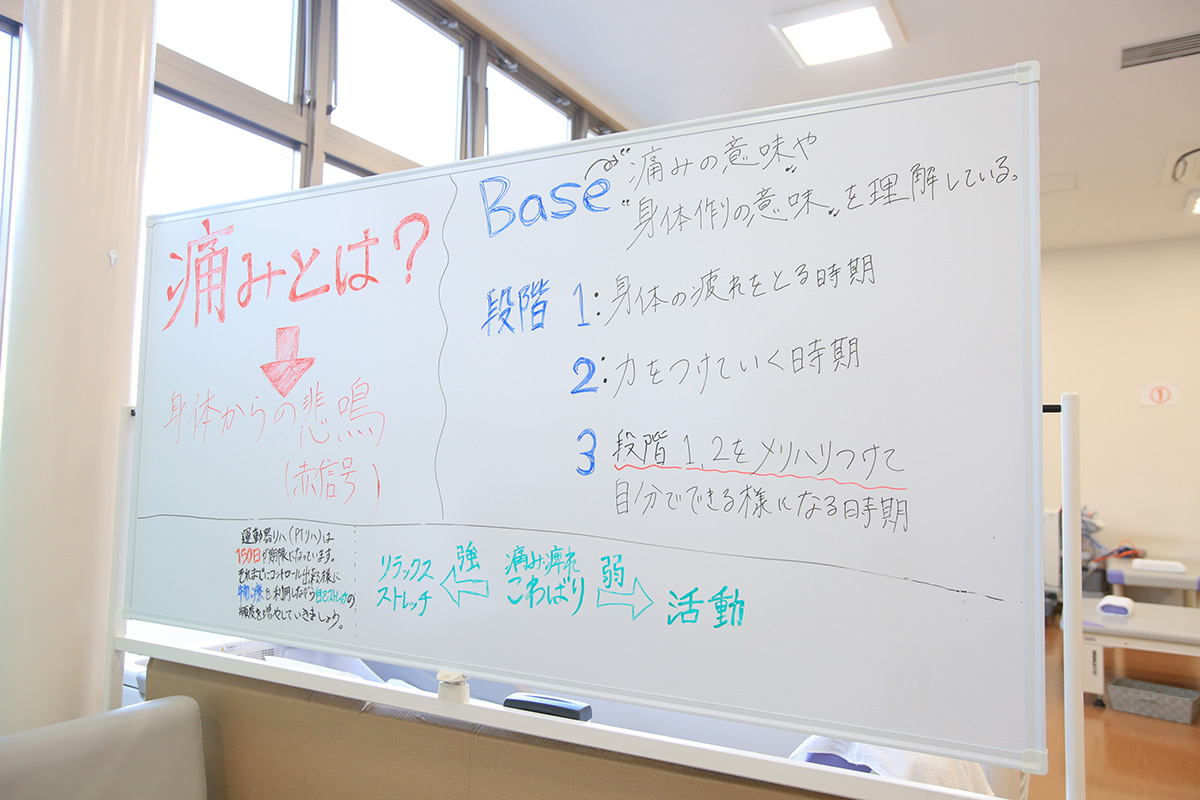 痛みとは?
身体からの悲鳴
(赤信号)
Base "痛みの意味や
"身体作りの意味"を理解している。
段階 1:身体の疲れをとる時期
2:力をつけていく時期
3 段階1,2をメリハリつけて
自分でできる様になる時期
運動器リハ(PTリハ)は
150日が期限になっています。
それまでにコントロール出来る様に
物療も利用しながら自宅ストレッチの
頻度を増やしていきましょう。
リラックス
ストレッチ
強
痛み痺れ
こわばり
弱
活動
①